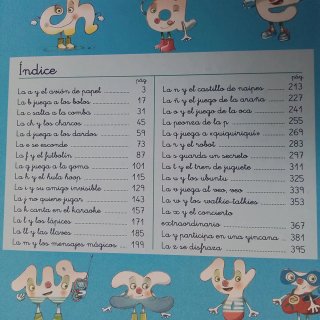 Índice
pág.
La a y el avión de papel 3
La b juega a los bolos 17
La c salta a la comba 31
La ch y los charcos 45
La d juega a los dardos 59
La e se esconde 73
La f y el futbolín 87
La g juega a la goma 101
La h y el hula hoop 115
La i y su amigo invisible 129
La j no quiere jugar 143
La k canta en el karaoke 157
La l y los lápices 171
La ll y las llaves 185
La m y los mensajes mágicos 199
pág.
La n y el castillo de naipes 213
La ñ y el juego de la araña 227
La o y el juego de la oca 241
La peonza de la p 255
La q juega a «quiquiriqui» 269
La r y el robot 283
La s guarda un secreto 297
La t y el tren de juguete 311
La u y los ubuntu 325
La v juega al veo, veo 339
La w y los walkie-talkies 353
La x y el concierto
extraordinario 367
La y participa en una yincana 381
La z se disfraza 395